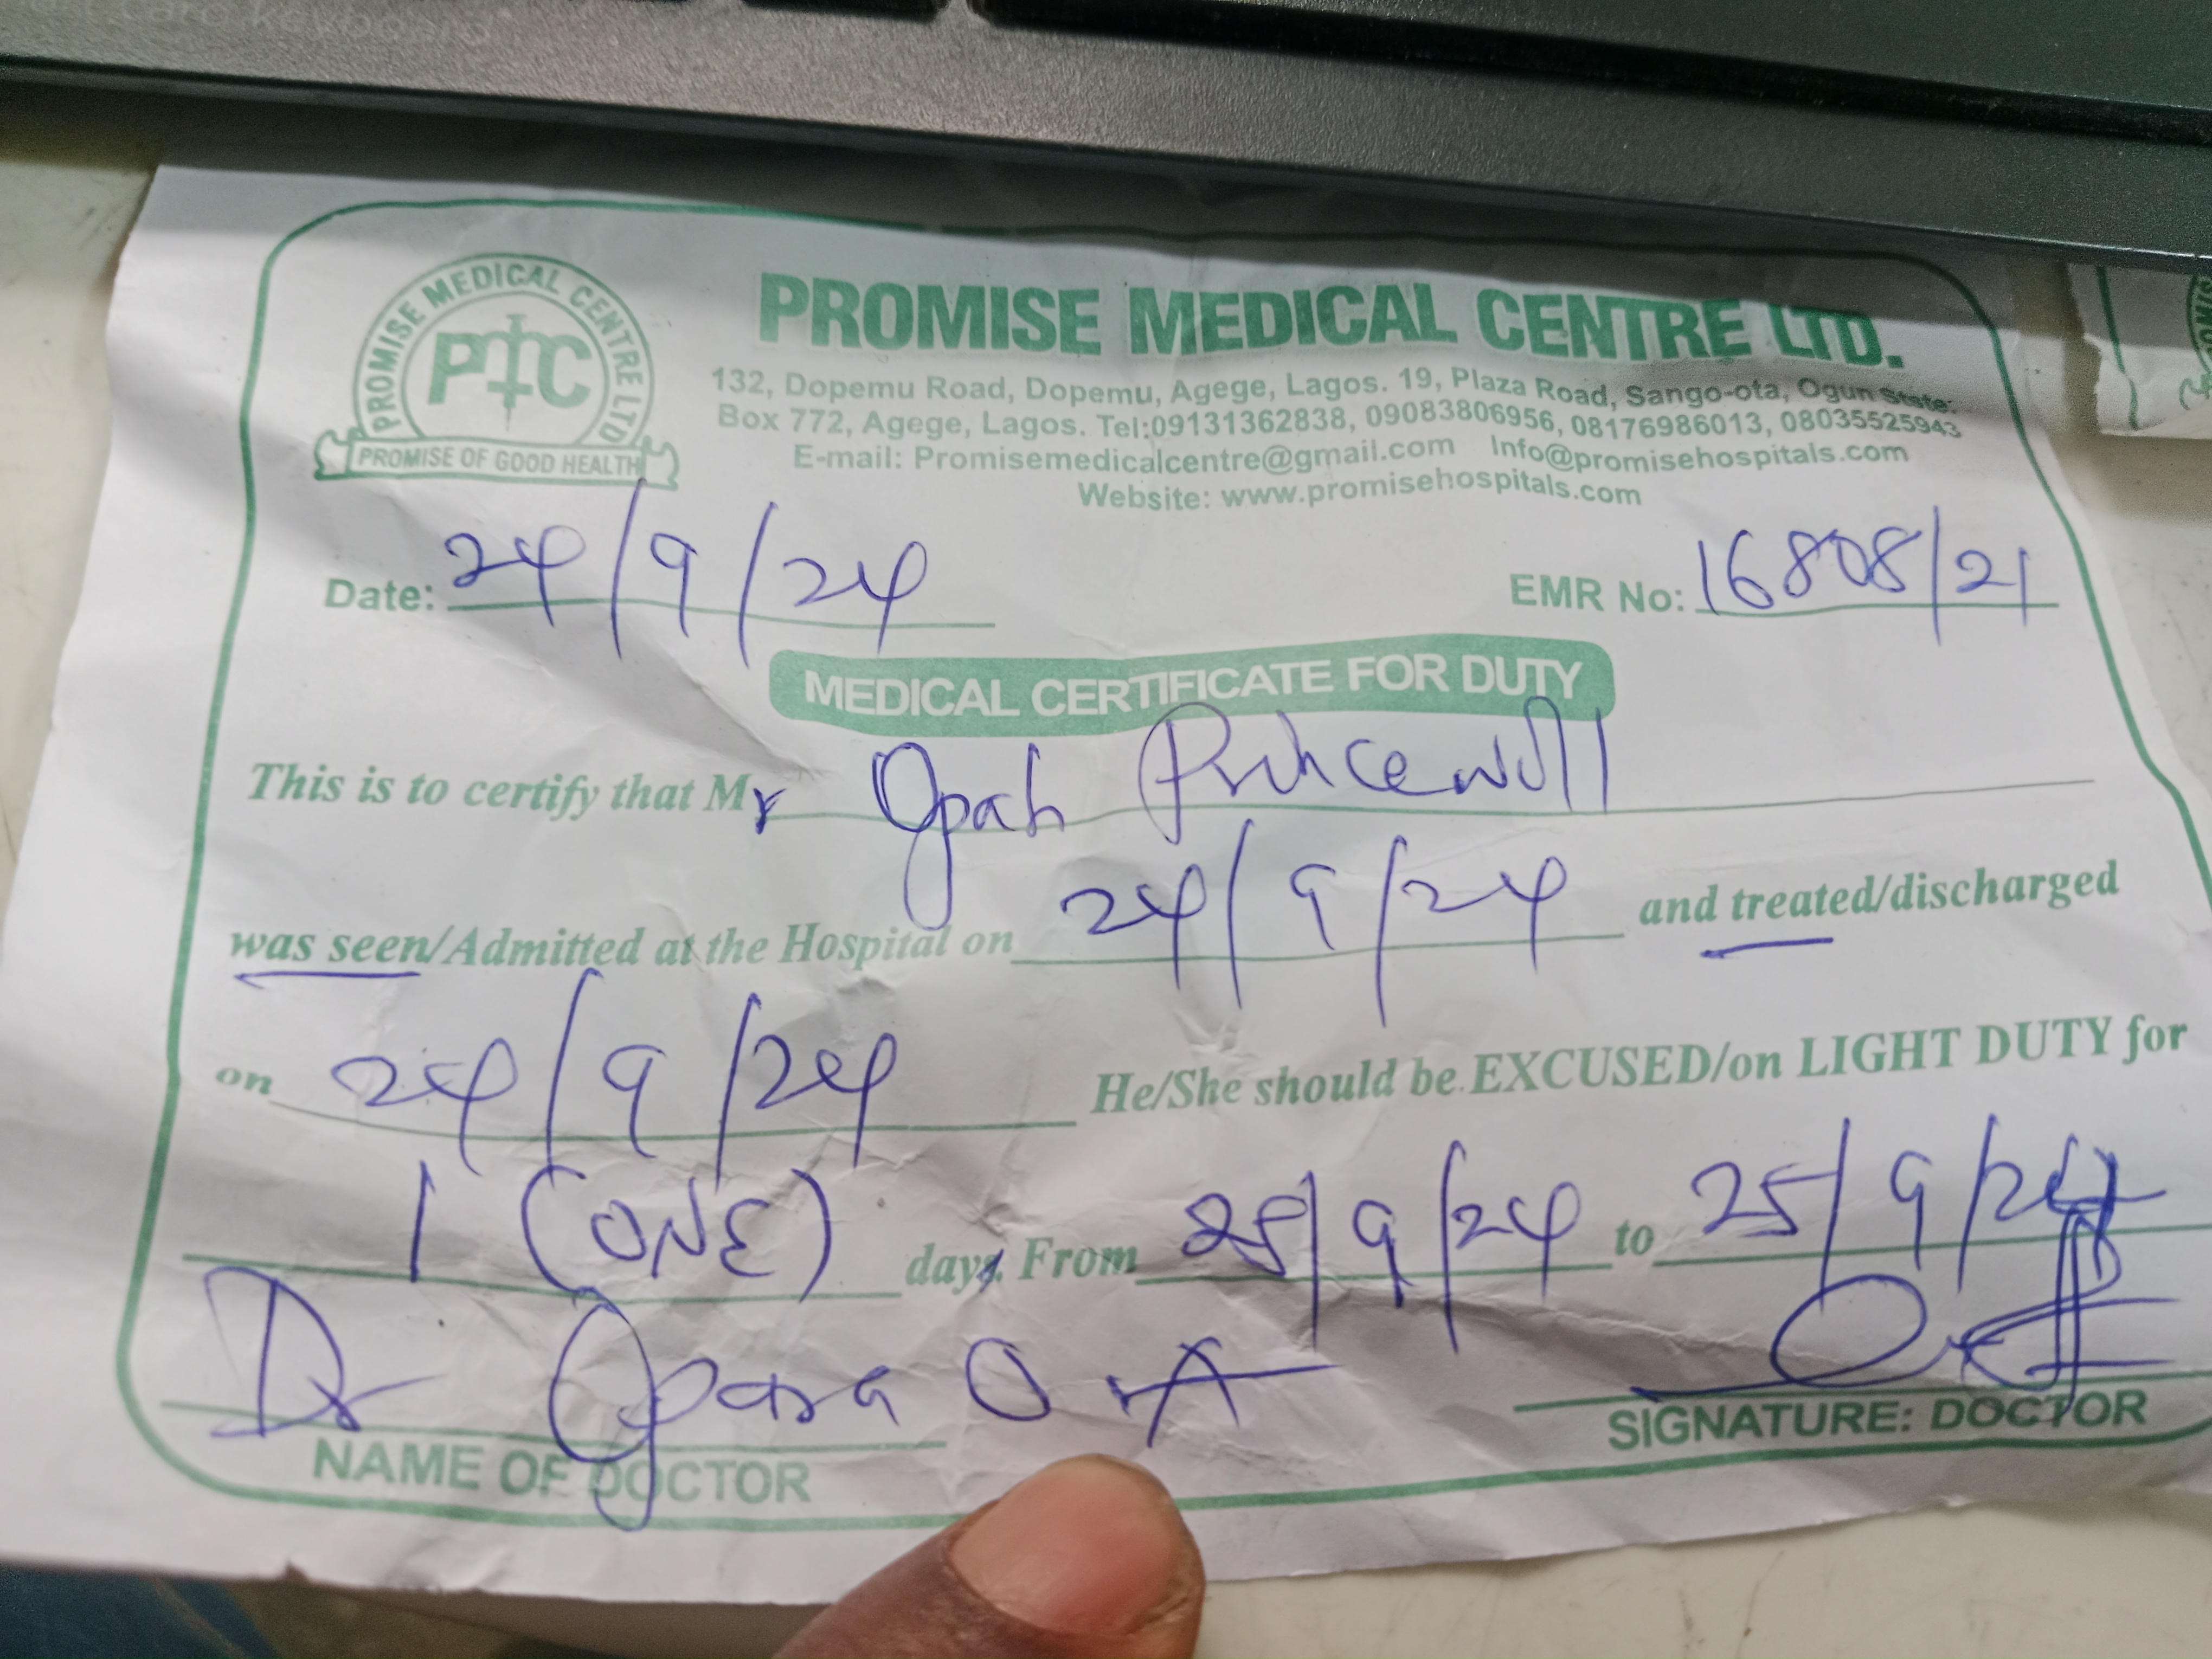 PROMISE MEDICAL CENTRE LTD
PMC
PROMISE OF GOOD HEALTH
PROMISE MEDICAL CENTRE LTD.
132, Dopemu Road, Dopemu, Agege, Lagos. 19, Plaza Road, Sango-ota, Ogun State.
Box 772, Agege, Lagos. Tel:09131362838, 09083806956, 08176986013, 08035525943
E-mail: Promisemedicalcentre@gmail.com Info@promisehospitals.com
Website: www.promisehospitals.com
Date: 24/9/24 EMR No: 16808/21
MEDICAL CERTIFICATE FOR DUTY
This is to certify that Mr Opah Princewill
was seen/Admitted at the Hospital on 24/9/24 and treated/discharged
on 24/9/24 He/She should be EXCUSED/on LIGHT DUTY for
1 (ONE) day. From 25/9/24 to 25/9/24
Dr O. A
NAME OF DOCTOR SIGNATURE: DOCTOR